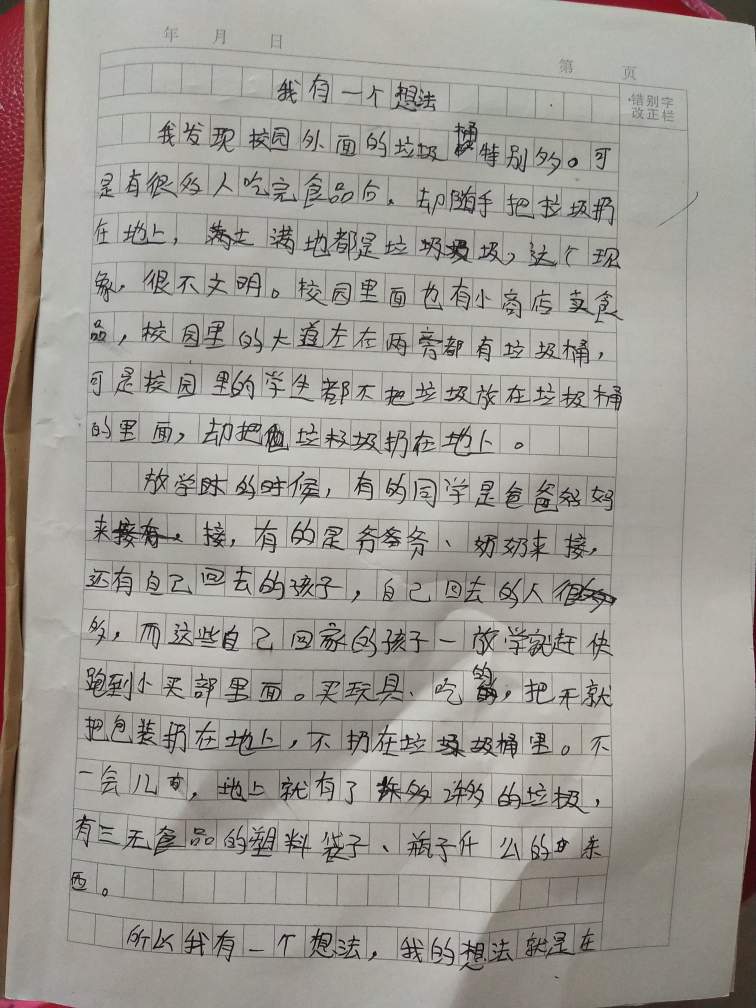 年 月 日
第 页
错别字
改正栏
我有一个想法
我发现校园外面的垃圾桶特别多。可
是有很多人吃完食品后，却随手把垃圾扔
在地上，满地都是垃圾，这个现
象，很不文明。校园里面也有小商店卖食
品，校园里的大道左在两旁都有垃圾桶，
可是校园里的学生都不把垃圾放在垃圾桶
的里面，却把垃圾扔在地上。
放学时的时候，有的同学是爸爸妈妈
来接，有的是爷爷、奶奶来接，
还有自己回去的孩子，自己回去的人很
多，而这些自己回家的孩子一放学就赶快
跑到小买部里面。买玩具、吃的，把开就
把包装扔在地上，不扔在垃圾桶里。不
一会儿，地上就有了许多的垃圾，
有三无食品的塑料袋子、瓶子什么的东
西。
所以我有一个想法，我的想法就是在